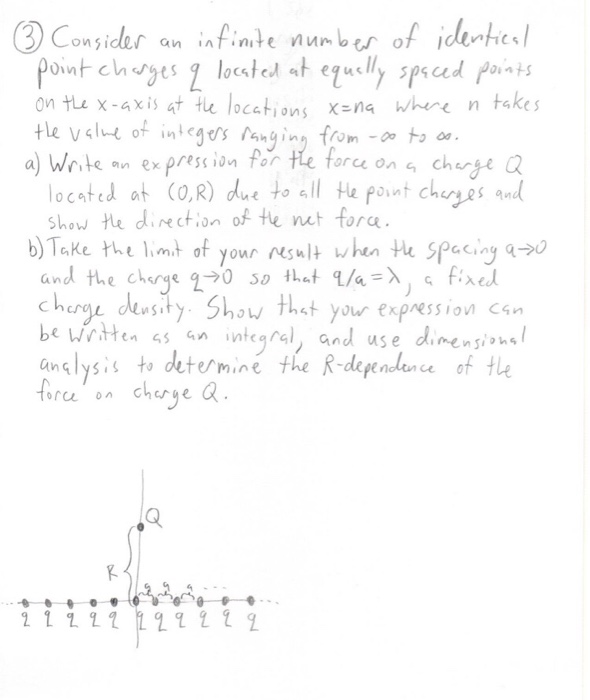 ③ Consider an infinite number of identical
point charges q located at equally spaced points
on the x-axis at the locations x=na where n takes
the value of integers ranging from -∞ to ∞.
a) Write an expression for the force on a charge Q
located at (0,R) due to all the point charges and
show the direction of the net force.
b) Take the limit of your result when the spacing a→0
and the charge q→0 so that q/a=λ, a fixed
charge density. Show that your expression can
be written as an integral, and use dimensional
analysis to determine the R-dependence of the
force on charge Q.
Q
R
a a a ....
q q q q q q q q q q q